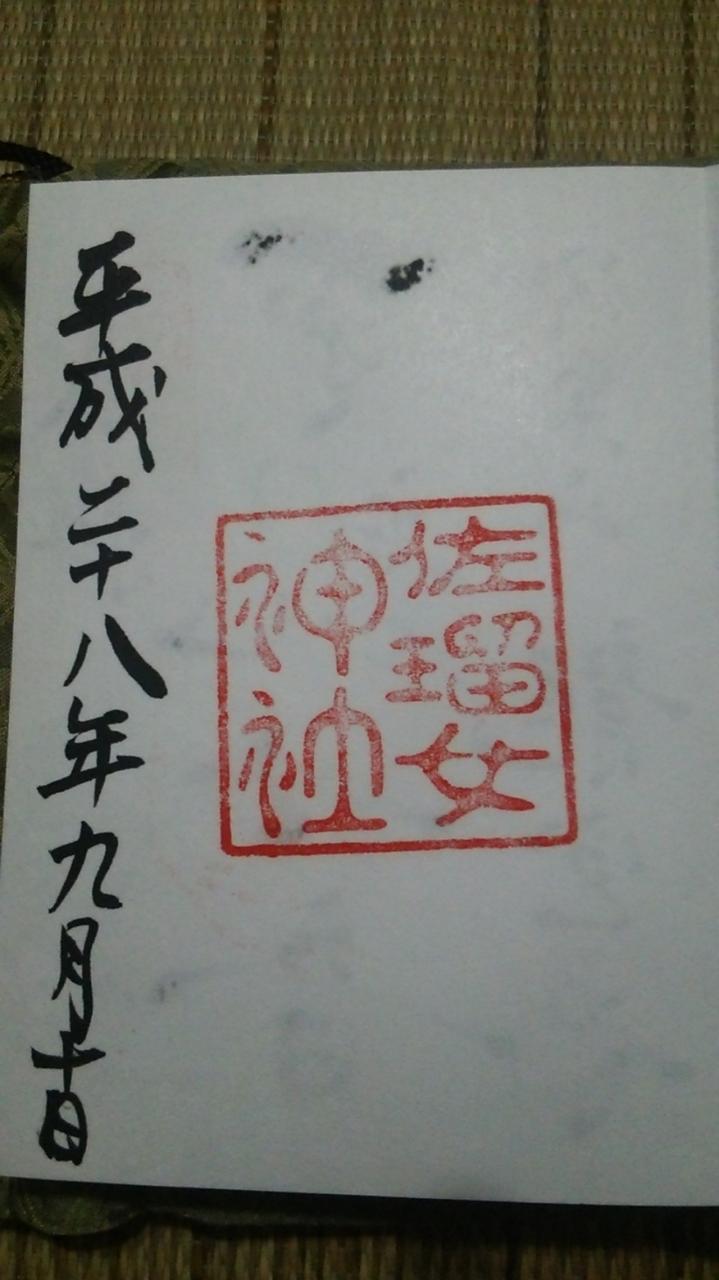 佐瑠女
神社
平成二十八年九月十日